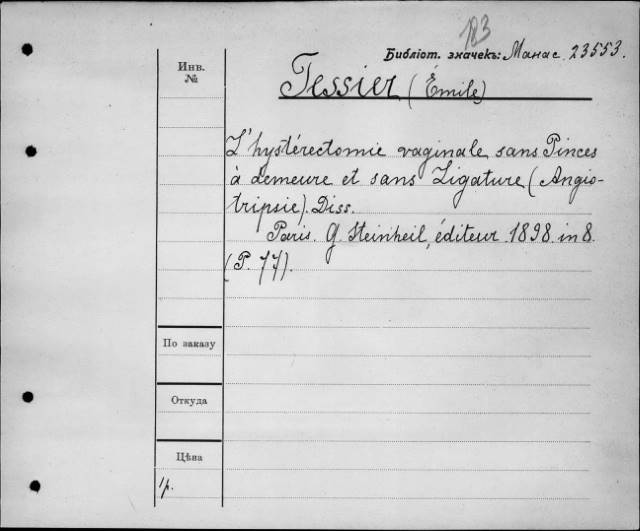 183
Инв. №
Библіот. значекъ: Манас. 23553.
Tessier (Émile)
L'hystérectomie vaginale sans Pinces
à demeure et sans Ligature (Angio-
tripsie). Diss.
Paris. G. Steinheil, éditeur. 1898. in 8.
(P. 77).
По заказу
Откуда
Цѣна
1р.